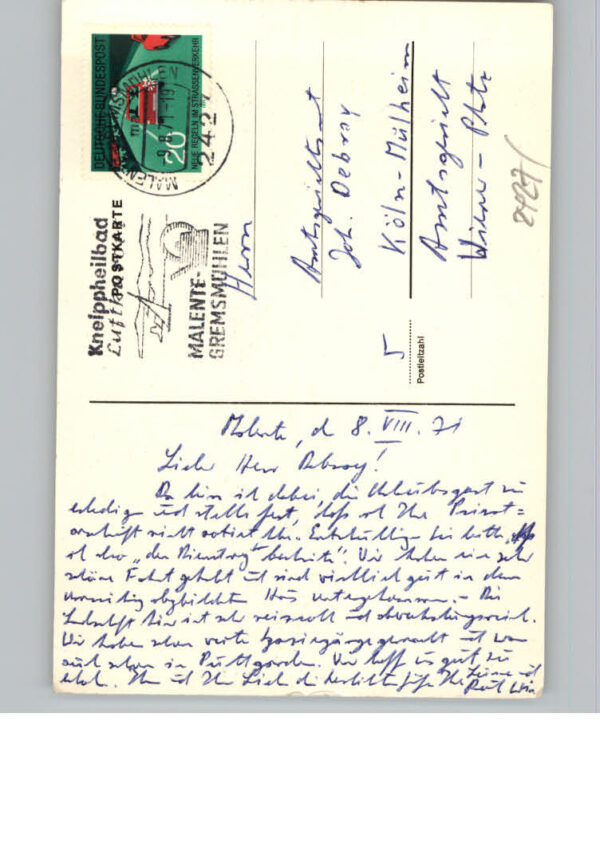 DEUTSCHE BUNDESPOST
20
NEUE REGELN IM STRASSENVERKEHR
MALENTE-GREMSMÜHLEN
2427
Kneippheilbad
Luftkurort
POSTKARTE
MALENTE-
GREMSMÜHLEN
Herrn
Amtsgerichtsrat
Joh. Debroy
5 Köln-Mülheim
Amtsgericht
Wiener-Platz
Postleitzahl
2427
Malente, d 8. VIII. 71
Lieber Herr Debroy!
Da bin ich dabei, die Urlaubspost zu
erledigen und stelle fest, daß ich Ihre Privat=
anschrift nicht notiert habe. Entschuldigen Sie bitte, daß
ich also "den Dienstweg beschreite". Wir haben eine sehr
schöne Fahrt gehabt und sind wirklich gut in dem
umseitig abgebildeten Haus untergekommen. - Die
Landschaft hier ist sehr reizvoll und abwechslungsreich.
Wir haben schon weite Spaziergänge gemacht und waren
auch schon in Puttgarden. Wir hoffen es geht
Ihnen und Ihrer die herzlichsten Grüße Ihr